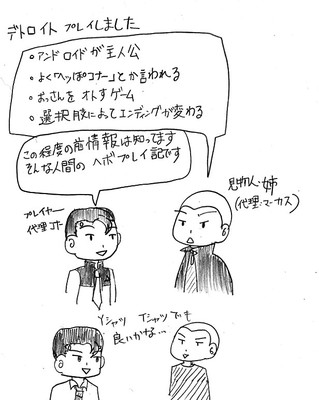 デトロイト プレイしました
・アンドロイドが主人公
・よく「へっぽこコナー」とか言われる
・おっさんをオトすゲーム
・選択肢によってエンディングが変わる
この程度の前情報は知ってます
そんな人間の ヘボプレイ記です
プレイヤー
代理コナー
見物人・姉
(代理・マーカス)
Yシャツ Tシャツでも
良いかな…